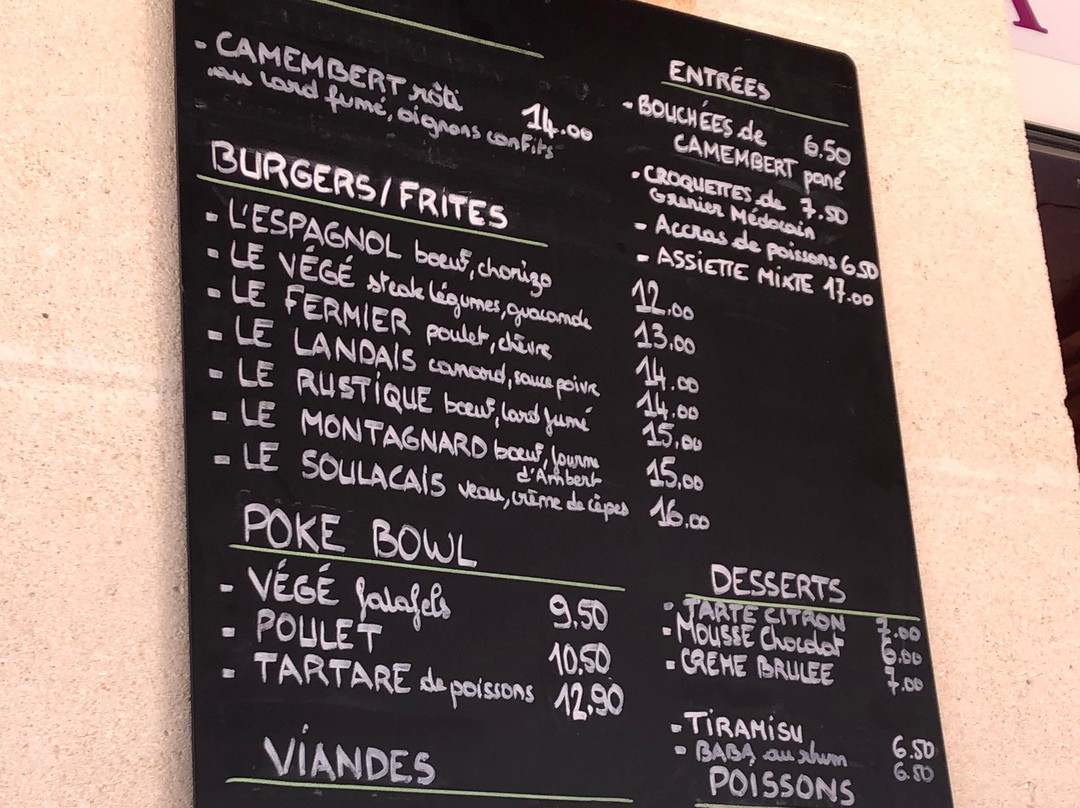 - CAMEMBERT rôti 14.00
au lard fumé, oignons confits
BURGERS/FRITES
- L'ESPAGNOL boeuf, chorizo 12.00
- LE VÉGÉ steak légumes, guacamole 13.00
- LE FERMIER poulet, chèvre 14.00
- LE LANDAIS canard, sauce poivre 14.00
- LE RUSTIQUE boeuf, lard fumé 15.00
- LE MONTAGNARD boeuf, fourme 15.00
d'Ambert
- LE SOULACAIS veau, crème de cèpes 16.00
POKE BOWL
- VÉGÉ falafels 9.50
- POULET 10.50
- TARTARE de poissons 12.90
VIANDES
ENTRÉES
- BOUCHÉES de 6.50
CAMEMBERT pané
- CROQUETTES de 7.50
Grenier Médocain
- Accras de poissons 6.50
- ASSIETTE MIXTE 17.00
DESSERTS
- TARTE CITRON 7.00
- MOUSSE Chocolat 6.00
- CREME BRULEE 7.00
- TIRAMISU 6.50
- BABA au rhum 6.50
POISSONS